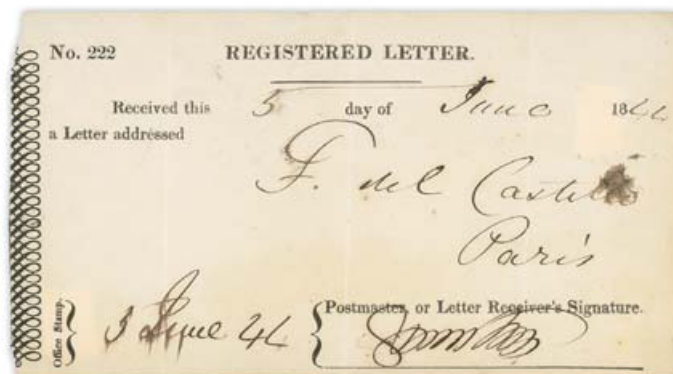 No. 222 REGISTERED LETTER.
Received this 5 day of June 1844
a Letter addressed
F. del Castillo
Paris
Office Stamp. 5 June 44 Postmaster, or Letter Receiver's Signature.